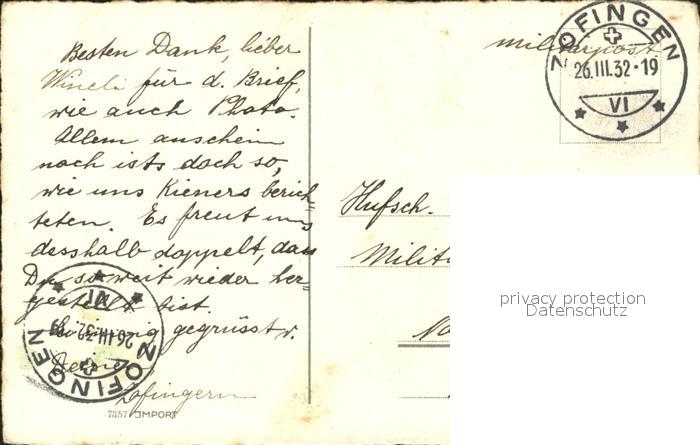 Besten Dank, lieber
für d. Brief,
wie auch Photo.
Allem anschein
nach ists doch so,
wie uns Kieners berich=
teten. Es freut uns
desshalb doppelt, dass
Du so weit wieder her=
gestellt bist.
gegrüsst v.
Deinen
Zofingern
7357 IMPORT
Militärpost
ZOFINGEN
26.III.32·19
VI
Hufsch.
Milit
privacy protection
Datenschutz
ZOFINGEN
26.III.32
VI